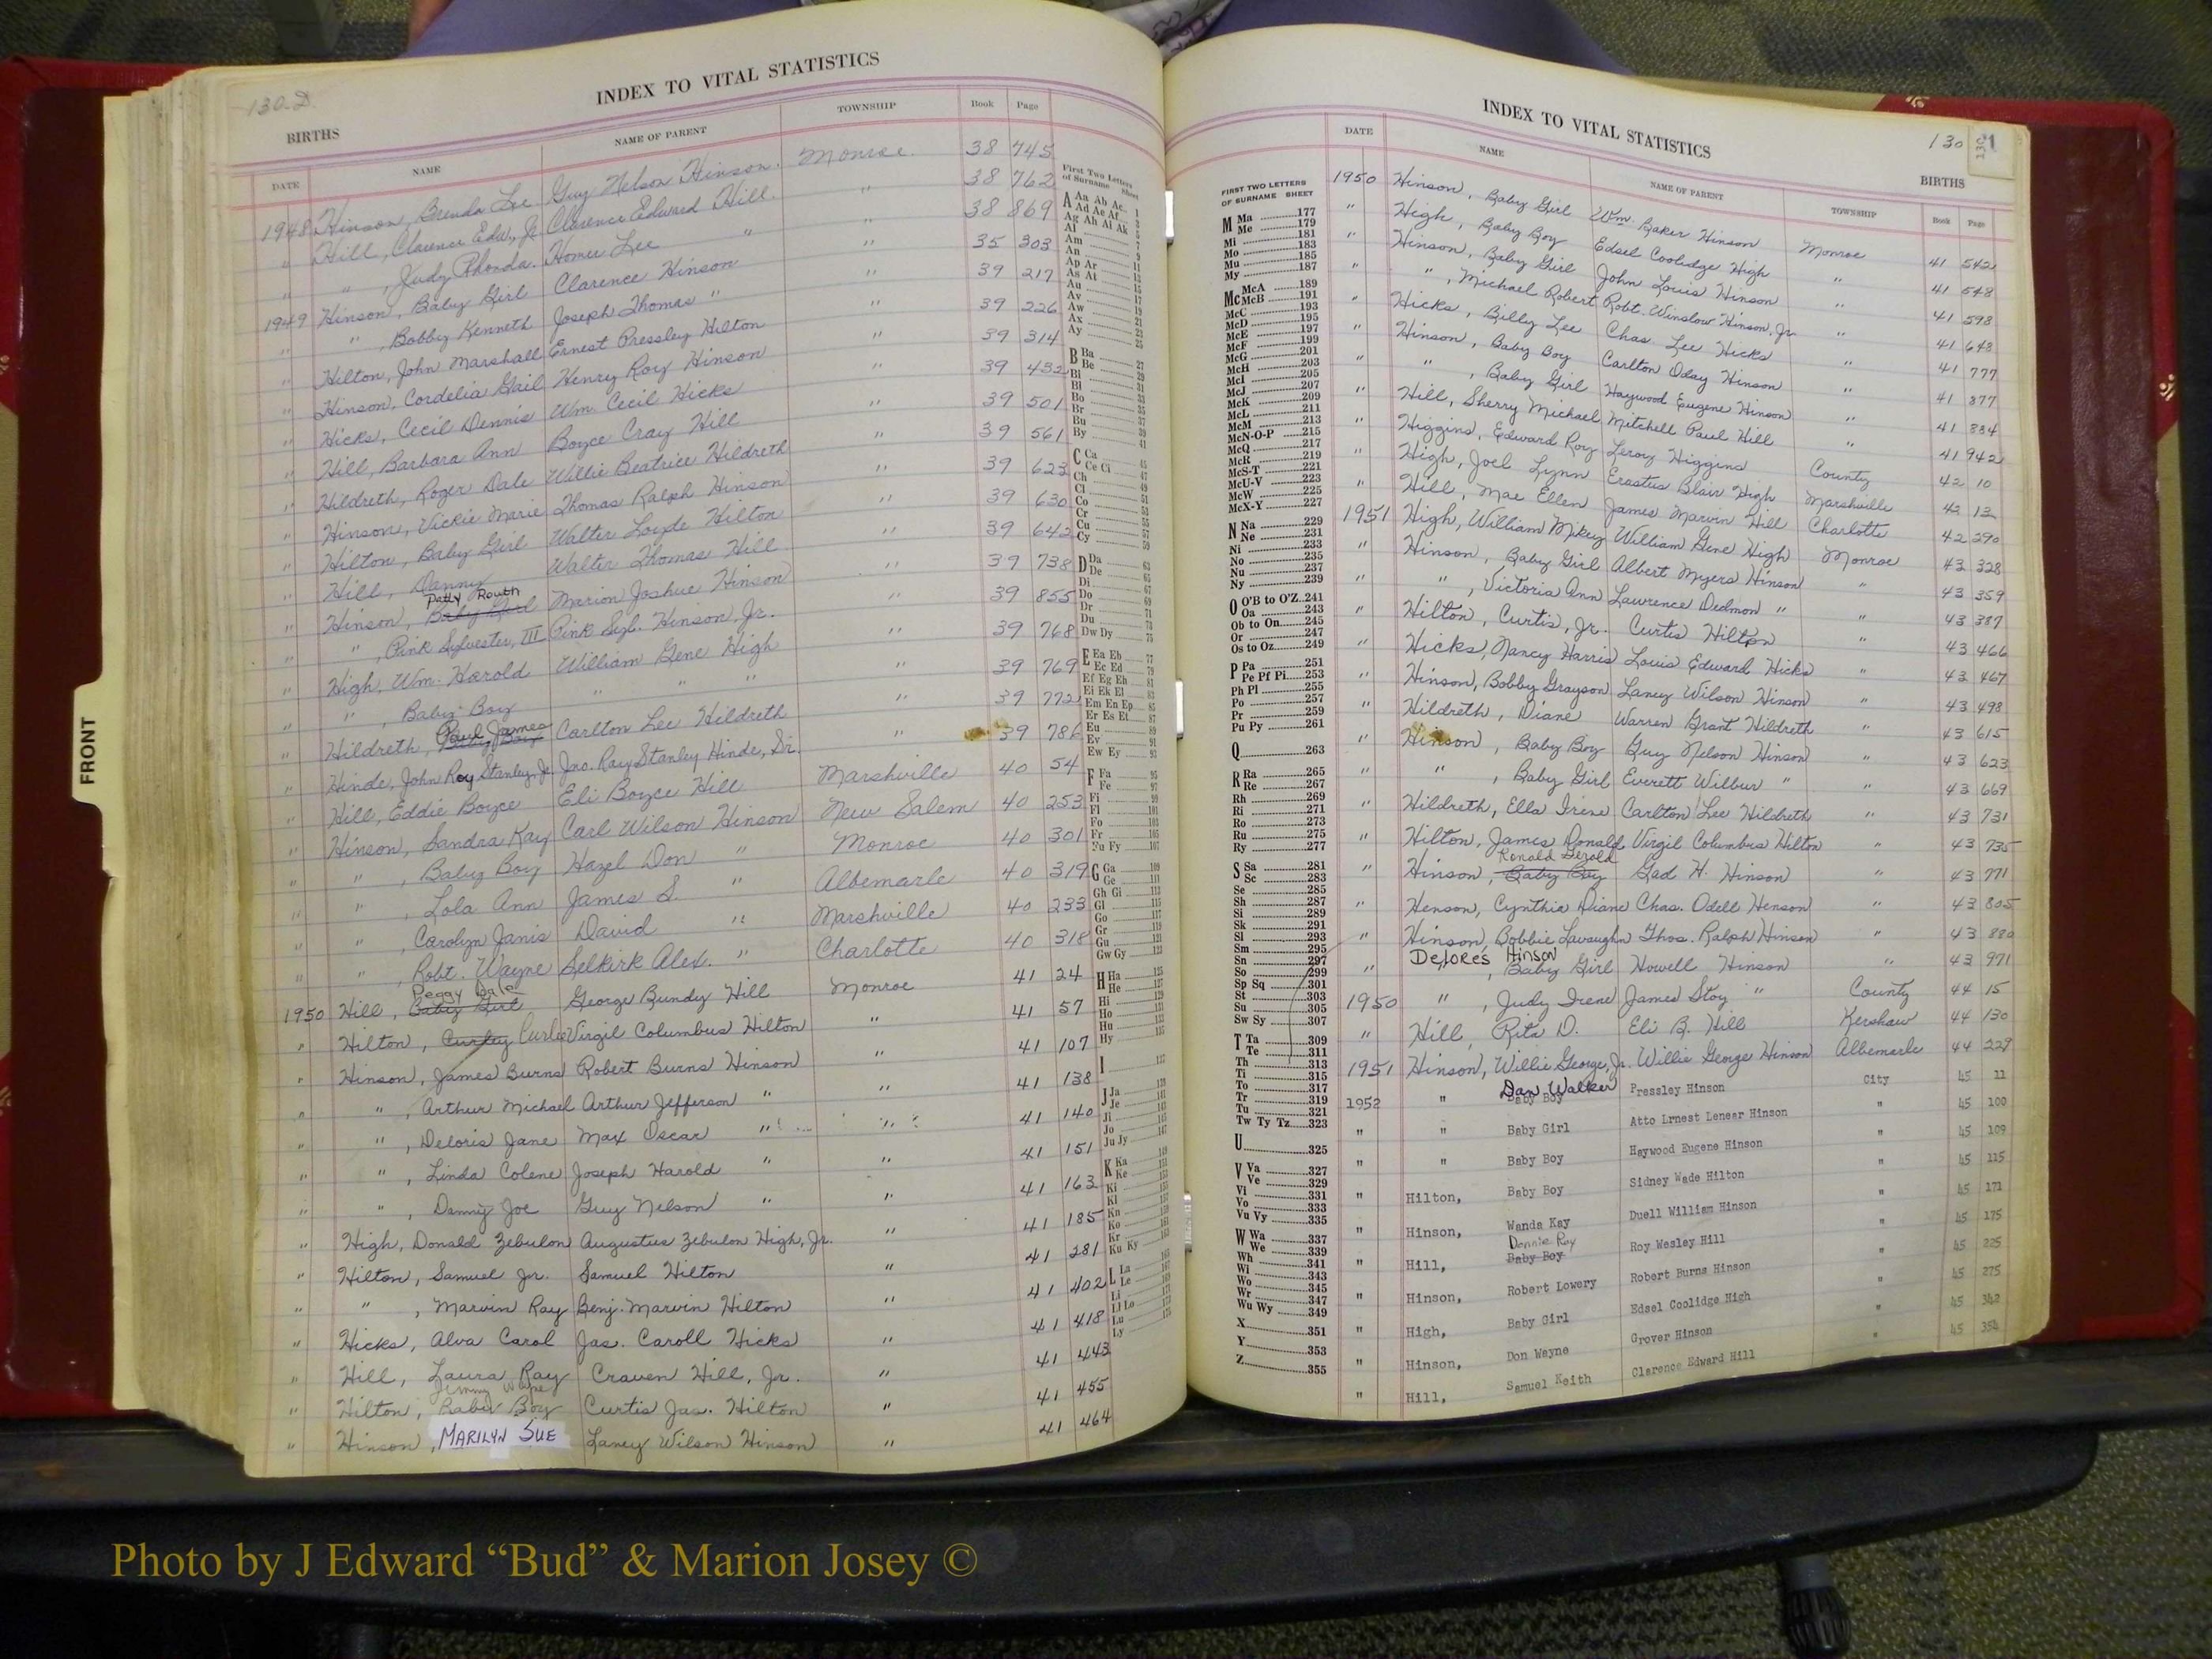 130-D
INDEX TO VITAL STATISTICS
BIRTHS
DATE NAME NAME OF PARENT TOWNSHIP Book Page
1948 Hinson, Brenda Lee Guy Nelson Hinson Monroe 38 745
" Hill, Clarence Edw., Jr. Clarence Edward Hill " 38 762
" " , Judy Rhonda Homer Lee " " 38 869
1949 Hinson, Baby Girl Clarence Hinson " 35 303
" " , Bobby Kenneth Joseph Thomas " " 39 217
" Hilton, John Marshall Ernest Pressley Hilton " 39 226
" Hinson, Cordelia Gail Henry Roy Hinson " 39 314
" Hicks, Cecil Dennis Wm. Cecil Hicks " 39 432
" Hill, Barbara Ann Boyce Cray Hill " 39 501
" Hildreth, Roger Dale Willie Beatrice Hildreth " 39 561
" Hinson, Vickie Marie Thomas Ralph Hinson " 39 623
" Hilton, Baby Girl Walter Loyde Hilton " 39 630
" Hill, Danny Walter Thomas Hill " 39 642
" Hinson, Baby Girl Patty Routh Marion Joshue Hinson " 39 738
" " , Pink Sylvester, III Pink Syl. Hinson, Jr. " 39 855
" High, Wm. Harold William Gene High " 39 768
" " , Baby Boy " " " " 39 769
" Hildreth, Baby Boy Paul James Carlton Lee Hildreth " 39 772
" Hinde, John Roy Stanley, Jr. Jno. Ray Stanley Hinde, Sr. " 39 786
" Hill, Eddie Boyce Eli Boyce Hill Marshville 40 54
" Hinson, Sandra Kay Carl Wilson Hinson New Salem 40 253
" " , Baby Boy Hazel Don " Monroe 40 301
" " , Lola Ann James S. " Albemarle 40 319
" " , Carolyn Janis David " Marshville 40 233
" " , Robt. Wayne Selkirk Alex. " Charlotte 40 318
1950 Hill, Baby Girl Peggy Dale George Bundy Hill Monroe 41 24
" Hilton, Curley Curlee Virgil Columbus Hilton " 41 57
" Hinson, James Burns Robert Burns Hinson " 41 107
" " , Arthur Michael Arthur Jefferson " " 41 138
" " , Deloris Jane Max Oscar " " 41 140
" " , Linda Colene Joseph Harold " " 41 151
" " , Danny Joe Guy Nelson " " 41 163
" High, Donald Zebulon Augustus Zebulon High, Jr. " 41 185
" Hilton, Samuel Jr. Samuel Hilton " 41 281
" " , Marvin Ray Benj. Marvin Hilton " 41 402
" Hicks, Alva Carol Jas. Caroll Hicks " 41 418
" Hill, Laura Ray Craven Hill, Jr. " 41 443
" Hilton, Baby Boy Jimmy Curtis Jas. Hilton " 41 455
" Hinson, MARILYN SUE Laney Wilson Hinson " 41 464
First Two Letters
of Surname Sheet
A Aa Ab Ac 1
Ad Ae Af 3
Ag Ah Ai Ak 5
Al 7
Am 9
An 11
Ap Ar 13
As At 15
Au 17
Av 19
Aw 21
Ay 23
B Ba 27
Be 29
Bi 31
Bl 33
Bo 35
Br 37
Bu 39
By 41
C Ca 45
Ce Ci 47
Ch 49
Cl 51
Co 53
Cr 55
Cu 57
Cy 59
D Da 63
De 65
Di 67
Do 69
Dr 71
Du 73
Dw Dy 75
E Ea Eb 77
Ec Ed 79
Ef Eg Eh 81
Ei Ek El 83
Em En Ep 85
Er Es Et 87
Eu 89
Ev 91
Ew Ey 93
F Fa 95
Fe 97
Fi 99
Fl 101
Fo 103
Fr 105
Fu Fy 107
G Ga 109
Ge 111
Gh Gi 113
Gl 115
Go 117
Gr 119
Gu 121
Gw Gy 123
H Ha 125
He
Hi
Ho
Hu
Hy
I
J Ja
Je
Ji
Jo
Ju Jy
K Ka
Ke
Ki
Kl
Kn
Ko
Kr
Ku Ky
L La
Le
Li
Ll Lo
Lu
Ly
FRONT
INDEX TO VITAL STATISTICS
130 1
BIRTHS
FIRST TWO LETTERS
OF SURNAME SHEET
M Ma 177
Me 179
Mi 181
Mo 183
Mu 185
My 187
Mc McA 189
McB 191
McC 193
McD 195
McE 197
McF 199
McG 201
McH 203
McI 205
McJ 207
McK 209
McL 211
McM 213
McN-O-P 215
McQ 217
McR 219
McS-T 221
McU-V 223
McW 225
McX-Y 227
N Na 229
Ne 231
Ni 233
No 235
Nu 237
Ny 239
O O'B to O'Z 241
Oa 243
Ob to On 245
Or 247
Os to Oz 249
P Pa 251
Pe Pf Pi 253
Ph Pl 255
Po 257
Pr 259
Pu Py 261
Q 263
R Ra 265
Re 267
Rh 269
Ri 271
Ro 273
Ru 275
Ry 277
S Sa 281
Sc 283
Se 285
Sh 287
Si 289
Sk 291
Sl 293
Sm 295
Sn 297
So 299
Sp Sq 301
St 303
Su 305
Sw Sy 307
T Ta 309
Te 311
Th 313
Ti 315
To 317
Tr 319
Tu 321
Tw Ty Tz 323
U 325
V Va 327
Ve 329
Vi 331
Vo 333
Vu Vy 335
W Wa 337
We 339
Wh 341
Wi 343
Wo 345
Wr 347
Wu Wy 349
X 351
Y 353
Z 355
DATE NAME NAME OF PARENT TOWNSHIP Book Page
1950 Hinson, Baby Girl Wm. Baker Hinson Monroe 41 542
" High, Baby Boy Edsel Coolidge High " 41 548
" Hinson, Baby Girl John Louis Hinson " 41 598
" " , Michael Robert Robt. Winslow Hinson, Jr. " 41 648
" Hicks, Billy Lee Chas. Lee Hicks " 41 777
" Hinson, Baby Boy Carlton Oday Hinson " 41 877
" " , Baby Girl Haywood Eugene Hinson " 41 884
" Hill, Sherry Michael Mitchell Paul Hill " 41 942
" Higgins, Edward Roy Leroy Higgins County 42 10
" High, Joel Lynn Erastus Blair High Marshville 42 12
" Hill, Mae Ellen James Marvin Hill Charlotte 42 290
1951 High, William Mikey William Gene High Monroe 43 328
" Hinson, Baby Girl Albert Myers Hinson " 43 359
" " , Victoria Ann Lawrence Dedmon " " 43 387
" Hilton, Curtis, Jr. Curtis Hilton " 43 466
" Hicks, Nancy Harris Louis Edward Hicks " 43 467
" Hinson, Bobby Grayson Laney Wilson Hinson " 43 498
" Hildreth, Diane Warren Grant Hildreth " 43 615
" Hinson, Baby Boy Guy Nelson Hinson " 43 623
" " , Baby Girl Everett Wilbur " " 43 669
" Hildreth, Ella Irene Carlton Lee Hildreth " 43 731
" Hilton, James Donald Virgil Columbus Hilton " 43 735
" Hinson, Baby Boy Ronald Gerold Gad H. Hinson " 43 771
" Henson, Cynthia Diane Chas. Odell Henson " 43 805
" Hinson, Bobbie Lavaughn Thos. Ralph Hinson " 43 880
" " , Baby Girl Delores Hinson Howell Hinson " 43 971
1950 " , Judy Irene James Stoy " County 44 15
" Hill, Rita D. Eli B. Hill Kershaw 44 130
1951 Hinson, Willie George, Jr. Willie George Hinson Albemarle 44 229
1952 " Baby Boy Dan Walker Pressley Hinson City 45 11
" " Baby Girl Atto Lrnest Lenear Hinson " 45 100
" " Baby Boy Haywood Eugene Hinson " 45 109
" Hilton, Baby Boy Sidney Wade Hilton " 45 115
" Hinson, Wanda Kay Duell William Hinson " 45 171
" Hill, Baby Boy Donnie Ray Roy Wesley Hill " 45 175
" Hinson, Robert Lowery Robert Burns Hinson " 45 225
" High, Baby Girl Edsel Coolidge High " 45 275
" Hinson, Don Wayne Grover Hinson " 45 342
" Hill, Samuel Keith Clarence Edward Hill " 45 354
Photo by J Edward “Bud” & Marion Josey ©